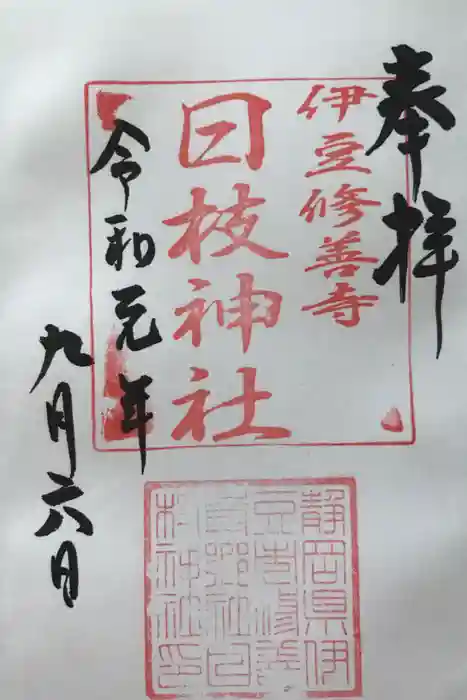 奉拝
伊豆修善寺
日枝神社
令和元年
九月六日
静岡県伊
豆市修善
寺郷社日
枝神社印